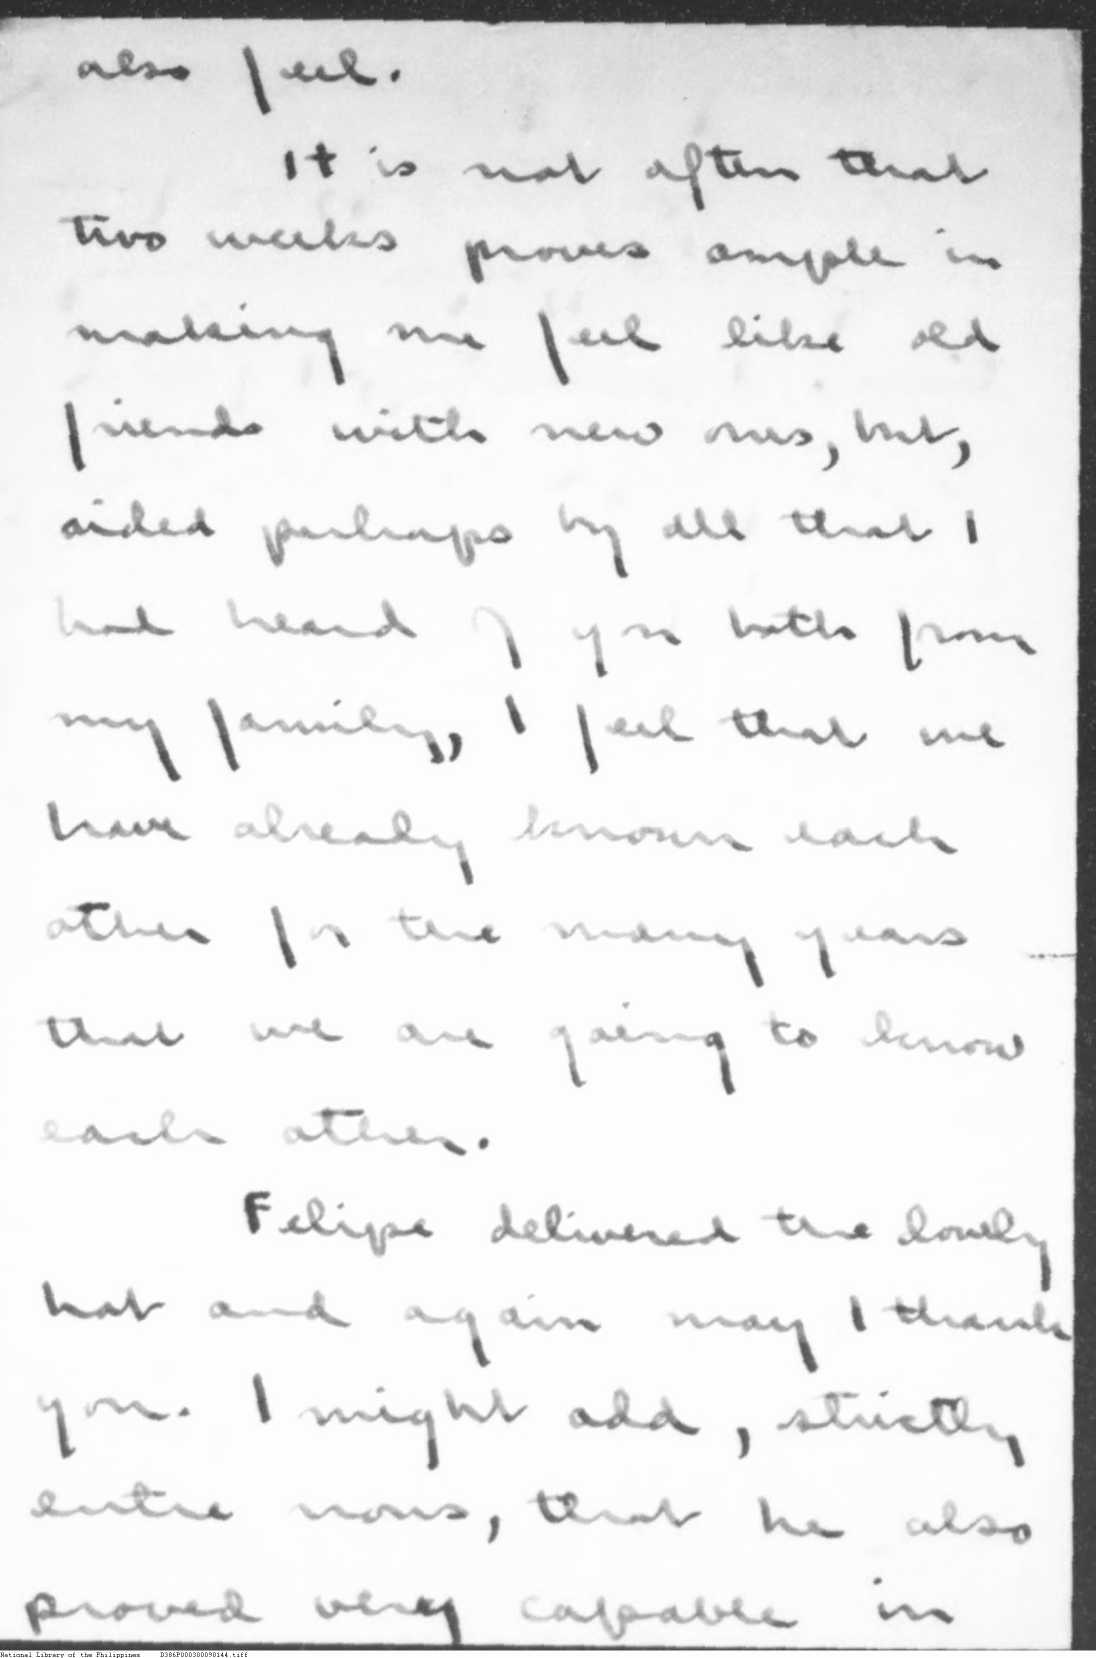 also feel.
It is not often that
two weeks proves ample in
making me feel like old
friends with new ones, but,
aided perhaps by all that I
had heard of you both from
my family, I feel that we
have already known each
other for the many years
that we are going to know
each other.
Felipe delivered the lovely
hat and again may I thank
you. I might add, strictly
entre nous, that he also
proved very capable in
National Library of the Philippines D386P000300090144.tiff